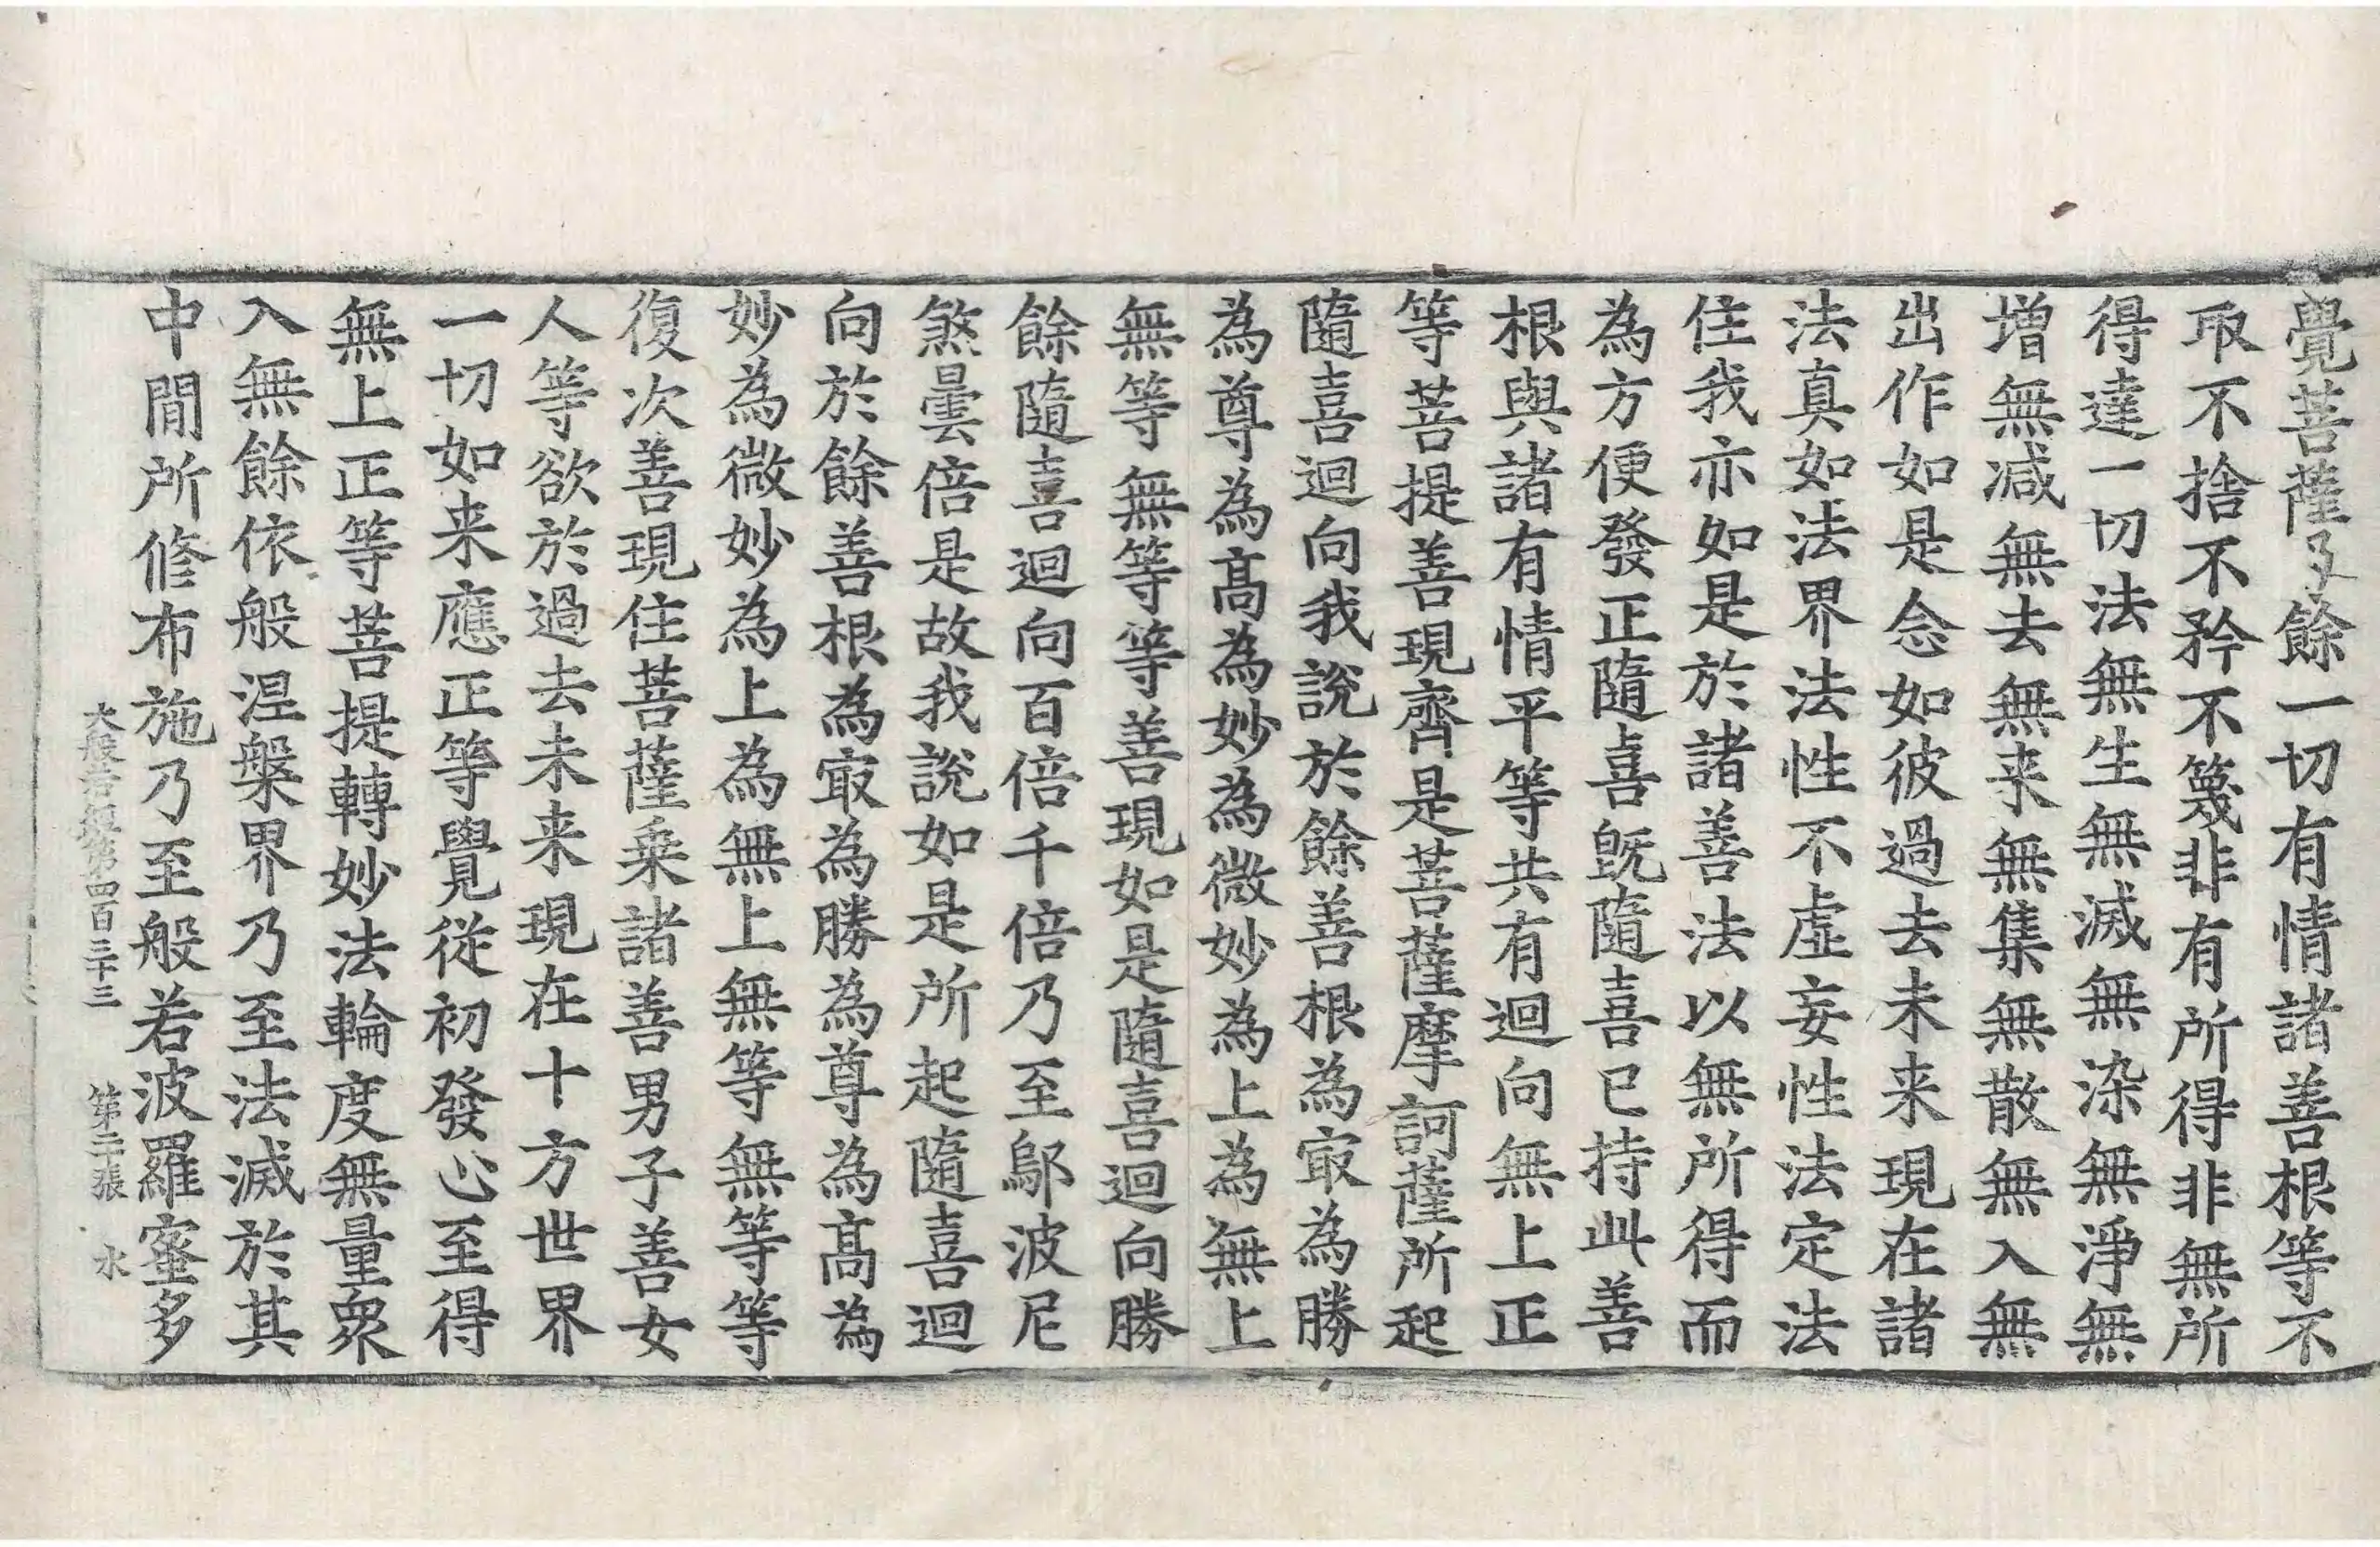 覺菩薩及餘一切有情諸善根等不
取不捨不矜不篾非有所得非無所
得達一切法無生無滅無染無淨無
增無減無去無来無集無散無入無
出作如是念如彼過去未来現在諸
法真如法界法性不虛妄性法定法
住我亦如是於諸善法以無所得而
為方便發正隨喜旣隨喜已持此善
根與諸有情平等共有迴向無上正
等菩提善現齊是菩薩摩訶薩所起
隨喜迴向我說於餘善根為㝡為勝
為尊為髙為妙為微妙為上為無上
無等無等等善現如是隨喜迴向勝
餘隨喜迴向百倍千倍乃至鄔波尼
煞曇倍是故我說如是所起隨喜迴
向於餘善根為㝡為勝為尊為髙為
妙為微妙為上為無上無等無等等
復次善現住菩薩乗諸善男子善女
人等欲於過去未来現在十方世界
一切如来應正等覺從初發心至得
無上正等菩提轉妙法輪度無量衆
入無餘依般涅槃界乃至法滅於其
中閒所修布施乃至般若波羅蜜多
大般若經第四百三十三　第二張　水